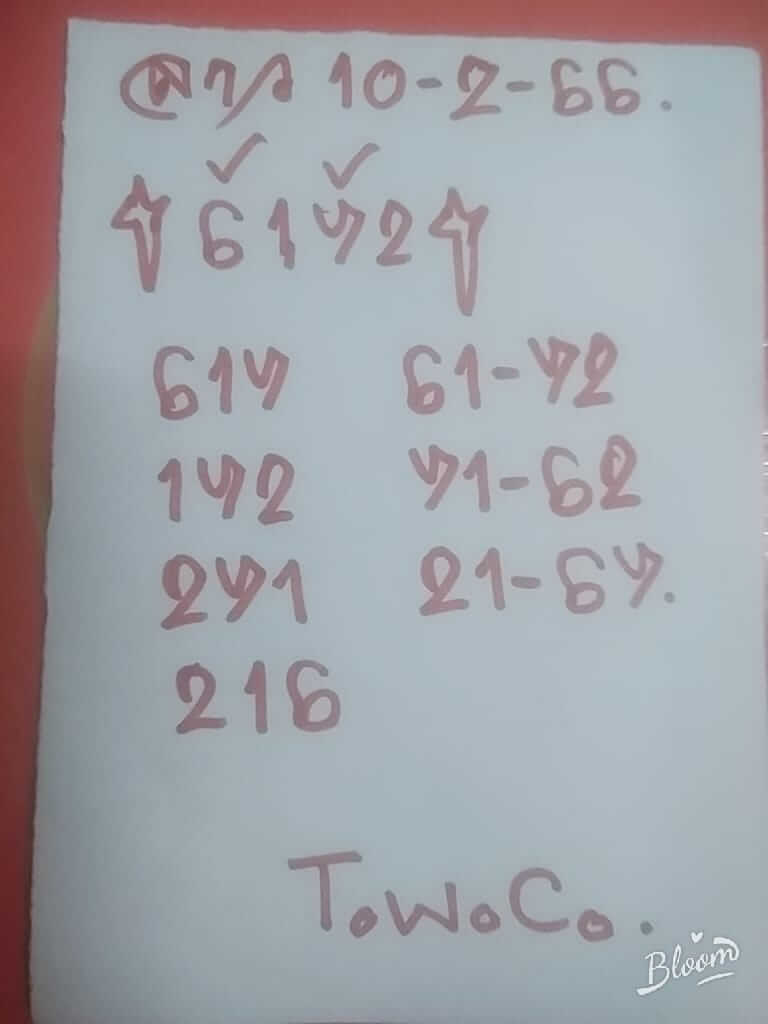 ลาว 10-2-66.
6172
617 61-72
172 71-62
271 21-67.
216
ToWoCo.
Bloom